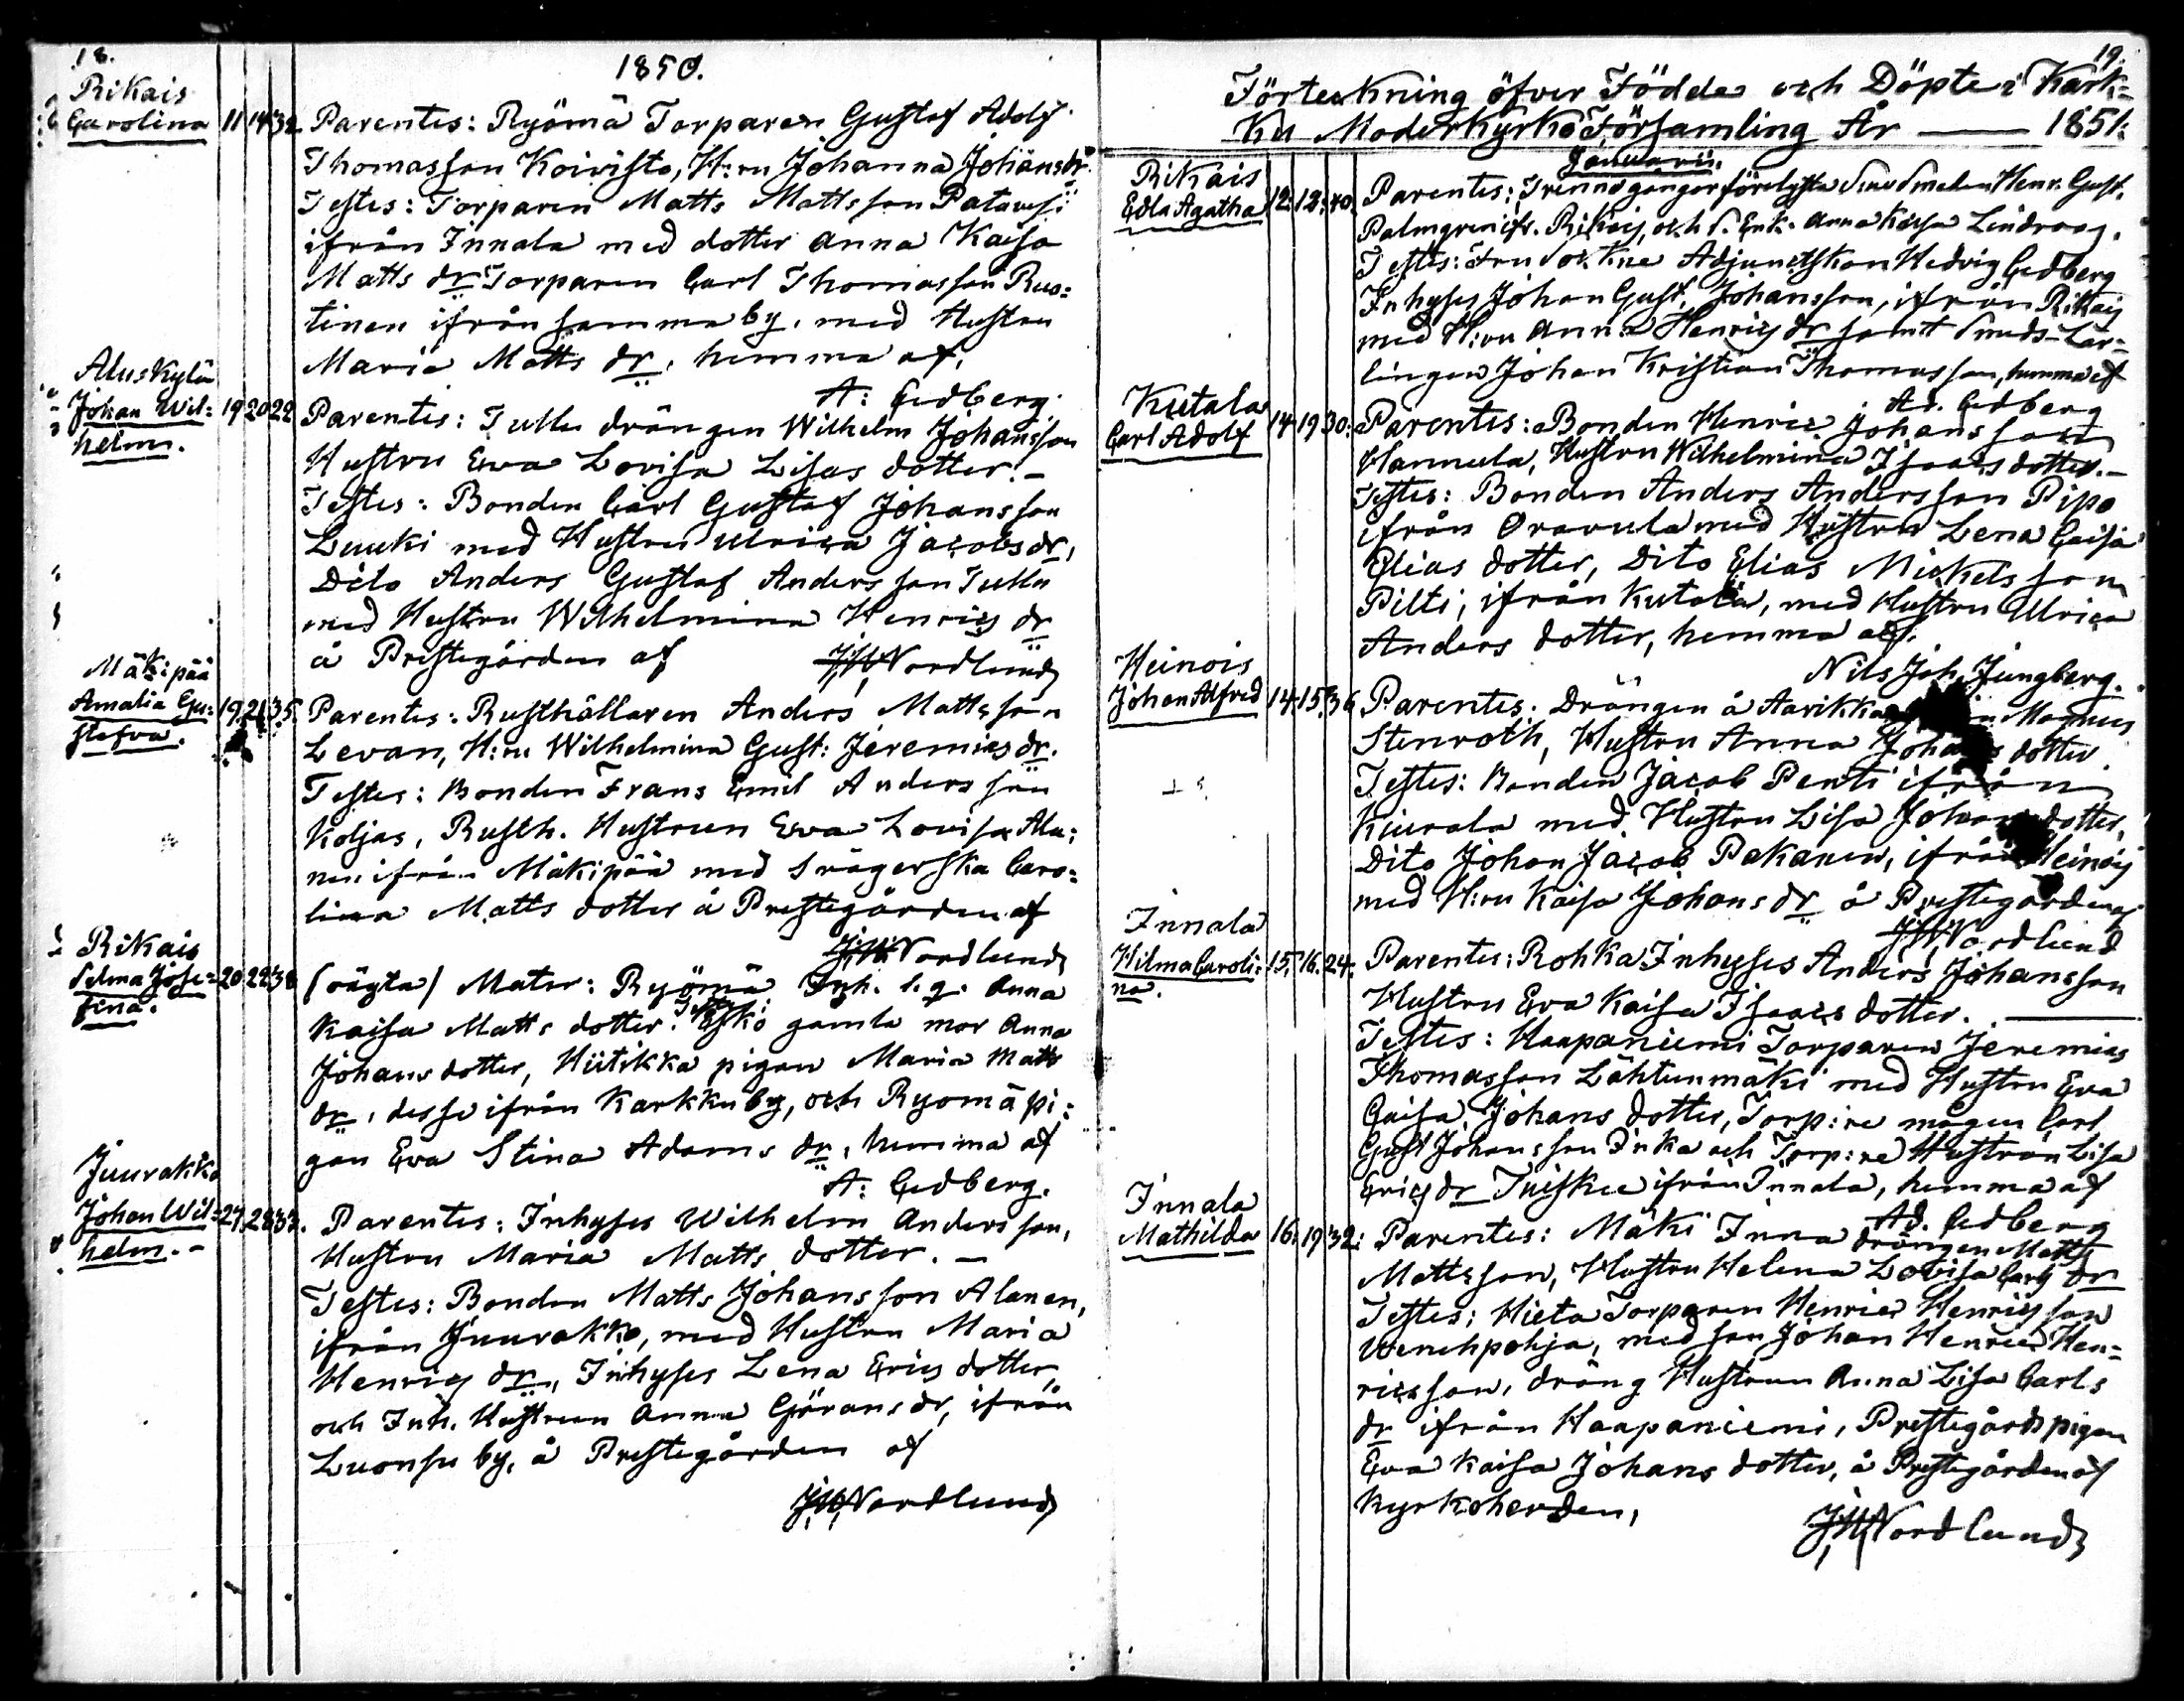 18.
1850.
Rikais
Carolina 11 14 32 Parentes: Ryömä Torparen Gustaf Adolf
Thomasson Koivisto, H:ru Johanna Johansdr
Testes: Torparen Matts Mattsson Patavesi
ifrån Innala med dotter Anna Kaisa
Matts dr Torparen Carl Thomasson Ruo=
tinen ifrån samma by, med Hustru
Maria Matts dr, hemma af,
A: Cedberg
Aluskylä
Johan Wil= 19 20 22 Parentes: Tulla drängen Wilhelm Johansson
helm. Hustru Ewa Lovisa Lisas dotter. –
Testes: Bonden Carl Gustaf Johansson
Luuki med Hustru Ulrica Jacobsdr,
Dito Anders Gustaf Andersson Tulla
med Hustru Wilhelmina Henrics dr
å Prestegården af J,W,Nordlund
Mäkipää
Amalia Gu= 19. 21. 35. Parentes: Rusthållaren Anders Mattsson
stafva. Levan, H:ru Wilhelmina Gust: Jeremiasdr.
Testes: Bonden Frans Emil Andersson
Koljas, Rusth. Hustrun Ewa Lovisa Ala=
nen ifrån Mäkipää med Svägerska Caro=
lina Matts dotter å Prestegården af
J,W,Nordlund
Rikais
Selma Jose= 20 22 38 (oägta) Mater: Ryömä Inh. l. q. Anna
fina. Kaisa Matts dotter. Testes: Eskö gamla mor Anna
Johans dotter, Hiitikka pigan Maria Matts
dr, desse ifrån Karkku by, och Ryomä pi=
gan Eva Stina Adams dr, hemma af
A: Cedberg.
Juurakko
Johan Wil= 27. 28 32. Parentes: Inhyses Wilhelm Andersson,
helm. – Hustru Maria Matts dotter. –
Testes: Bonden Matts Johansson Alanen,
ifrån Juurakko, med Hustru Maria
Henrics dr, Inhyses Lena Erics dotter,
och Inh. Hustrun Anna Görans dr, ifrån
Luonsu by, å Prestegården af
J,W,Nordlund
19.
Förteckning öfver Födde och Döpte i Kark=
ku Moderkyrko Församling År — 1851.
Januarii.
Rikais
Edla Agatha 12. 12. 40. Parentes: Trenne gångor förelysta Smeden Henr. Gust.
Palmgren ifr. Rikais, och Enk. Anna Kaisa Lindroos.
Testes: Fru Adjunctskan Hedvig Cedberg
Inhyses Johan Gust. Johansson, ifrån Rikais
med H:ru Anna Henrics dr samt Smeds-Lär=
lingen Johan Kristian Thomasson, hemma af
Ad. Cedberg
Kutala
Carl Adolf 14 19 30: Parentes: Bonden Henric Johansson
Hannula, Hustru Wilhelmina Isaacs dotter. –
Testes: Bonden Anders Andersson Pipo
ifrån Oravula med Hustru Lena Caisa
Elias dotter, Dito Elias Mickelsson
Pilti, ifrån Kutala, med Hustru Ulrica
Anders dotter, hemma af.
Nils Joh. Jungberg.
Heinois
Johan Alfred 14. 15. 36 Parentes: Drängen å Aarikka Magnus
Stenroth, Hustru Anna Johans dotter.
Testes: Bonden Jacob Penti ifrån
Kiurala med Hustru Lisa Johans dotter,
Dito Johan Jacob Pakanen, ifrån Heinois
med H:ru Kaisa Johans dr å Prestegården af
J,W,Nordlund
Innala
Hilma Caroli= 15. 16. 24. Parentes: Rohka Inhyses Anders Johansson
na. Hustru Eva Kaisa Isaacs dotter. —
Testes: Haapaniemi Torparen Jeremias
Thomasson Lähtunmäki med Hustru Eva
Caisa Johans dotter, Torp:re mågen Carl
Gust Johansson Inka och Torp:re Hustrun Lisa
Erics dr Tuisku ifrån Innala, hemma af
Ad. Cedberg
Innala
Mathilda 16. 19 32: Parentes: Mäki Inna drängen Matts
Mattsson, Hustru Helena Lovisa Carls dr
Testes: Hieta Torparen Henric Henricsson
Wenehpohja, med son Johan Henric Hen=
ricsson, dräng Hustrun Anna Lisa Carls
dr ifrån Haapaniemi, Prestegårdspigan
Eva Kaisa Johans dotter, å Prestegården af
Kyrkoherden, J,W,Nordlund